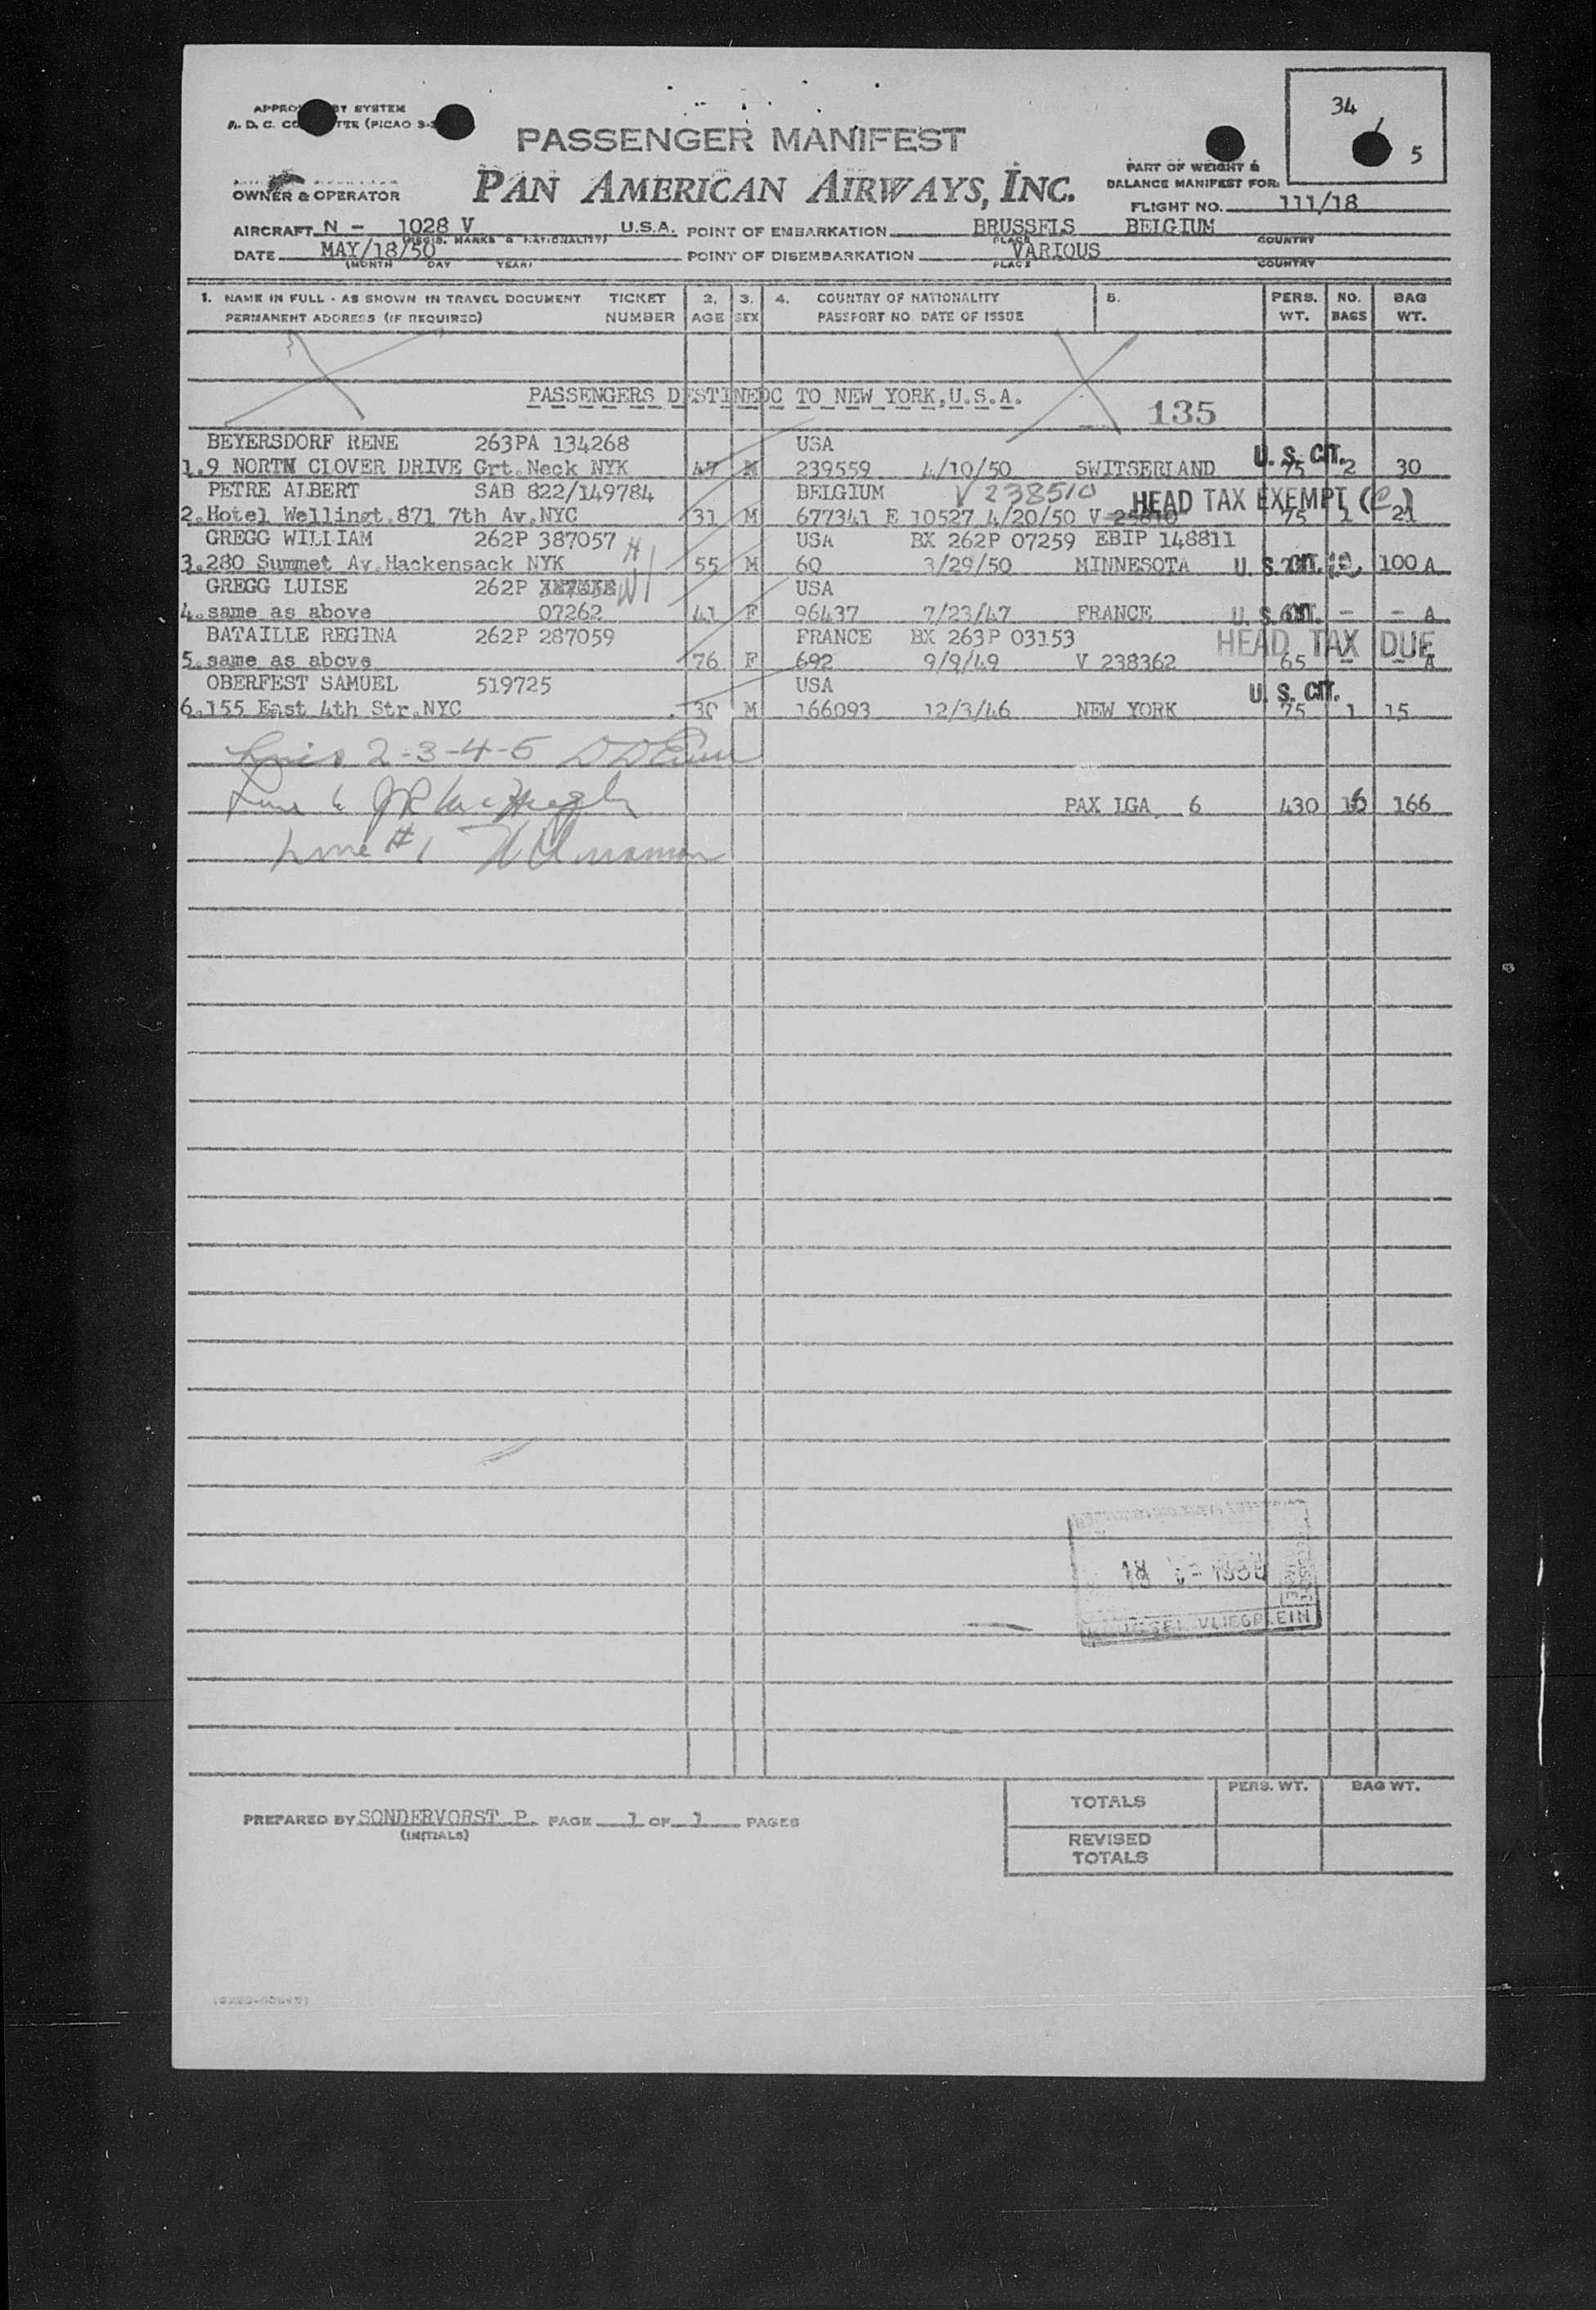 34
5
PASSENGER MANIFEST
PAN AMERICAN AIRWAYS, INC.
OWNER & OPERATOR
PART OF WEIGHT &
BALANCE MANIFEST FOR:
FLIGHT NO. 111/18
AIRCRAFT N - 1028 V U.S.A. POINT OF EMBARKATION BRUSSELS BELGIUM
PLACE COUNTRY
DATE MAY/18/50 POINT OF DISEMBARKATION VARIOUS
(MONTH DAY YEAR) PLACE COUNTRY
1. NAME IN FULL - AS SHOWN IN TRAVEL DOCUMENT TICKET 2. 3. 4. COUNTRY OF NATIONALITY 5. PERS. NO. BAG
PERMANENT ADDRESS (IF REQUIRED) NUMBER AGE SEX PASSPORT NO. DATE OF ISSUE WT. BAGS WT.
PASSENGERS DESTINEDC TO NEW YORK,U.S.A.
135
BEYERSDORF RENE 263PA 134268 USA U. S. CIT.
1.9 NORTH CLOVER DRIVE Grt.Neck NYK 47 M 239559 4/10/50 SWITSERLAND 75 2 30
PETRE ALBERT SAB 822/149784 BELGIUM V 238510 HEAD TAX EXEMPT (C)
2.Hotel Wellingt.871 7th Av.NYC 31 M 677341 E 10527 4/20/50 V 75 1 21
GREGG WILLIAM 262P 387057 USA BX 262P 07259 EBIP 148811
3.280 Summet Av.Hackensack NYK 55 M 60 3/29/50 MINNESOTA U. S. CIT. 100 A
GREGG LUISE 262P USA
4.same as above 07262 41 F 96437 7/23/47 FRANCE U. S. CIT. - - A
BATAILLE REGINA 262P 287059 FRANCE BX 263P 03153 HEAD TAX DUE
5.same as above 76 F 692 9/9/49 V 238362 65 - - A
OBERFEST SAMUEL 519725 USA U. S. CIT.
6.155 East 4th Str.NYC 30 M 166093 12/3/46 NEW YORK 75 1 15
2-3-4-5
Line 6
PAX LGA 6 430 16 166
Line #1
18 1950
VLIEGPLEIN
PREPARED BY SONDERVORST P. PAGE 1 OF 1 PAGES
(INITIALS)
PERS. WT. BAG WT.
TOTALS
REVISED
TOTALS